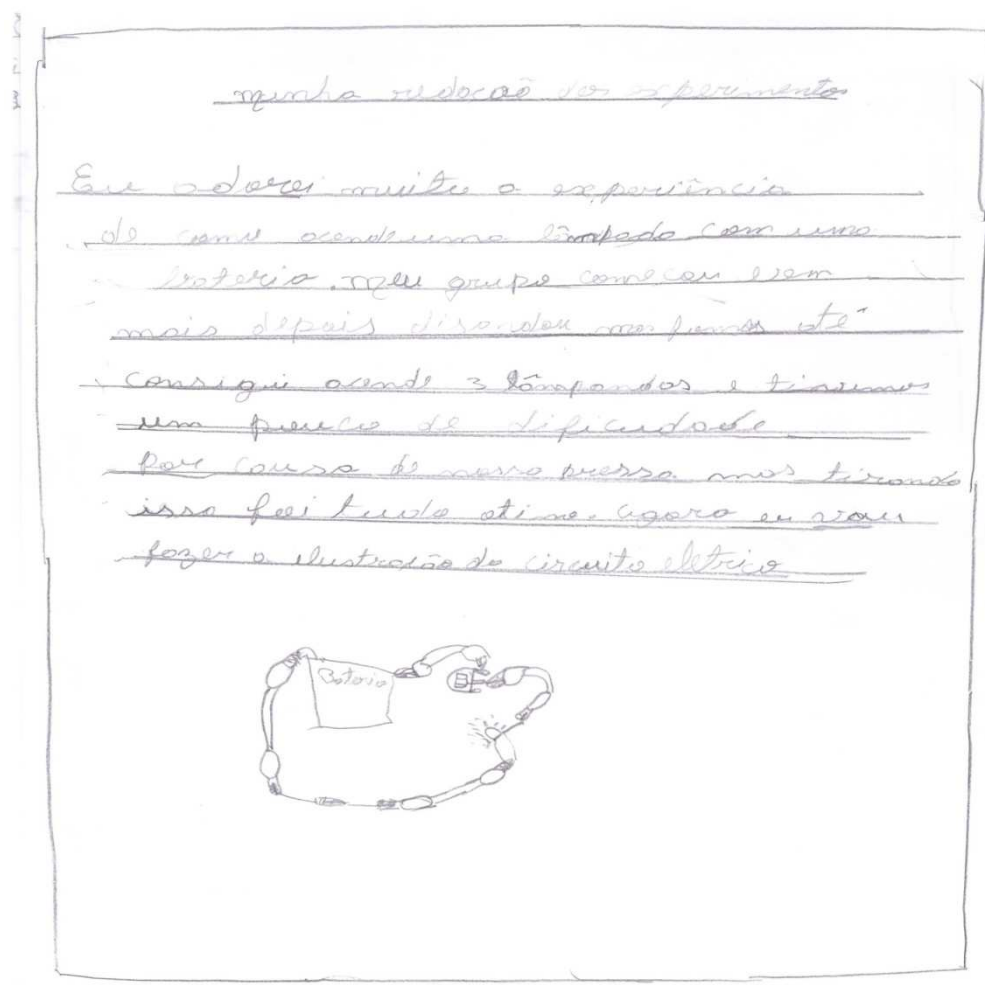 minha redocaõ dos experimentos
Eu adorei muito a experiência
de como acende uma lâmpada com uma
bateria. meu grupo comecou bem
mais depois disandou mas fomos até
consigui acende 3 lâmpandas e tivemos
um pouco de dificudade
Por causa de nossa pressa mas tirando
isso foi tudo otimo. agora eu vou
fazer a elustração do circuito eletrico
Bateria